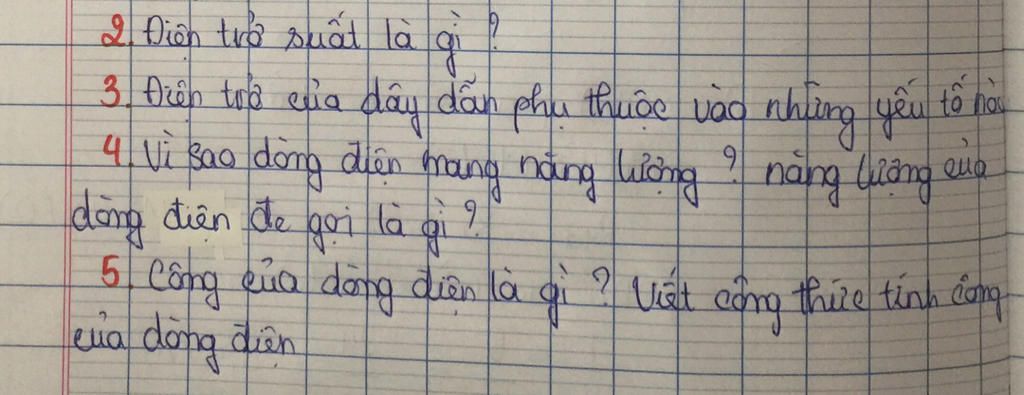 2. Điện trở suất là gì?
3. Điện trở của dây dẫn phụ thuộc vào những yếu tố nào
4. Vì sao dòng điện mang năng lượng? năng lượng của
dòng điện đc gọi là gì?
5. Công của dòng điện là gì? Viết công thức tính công
của dòng điện